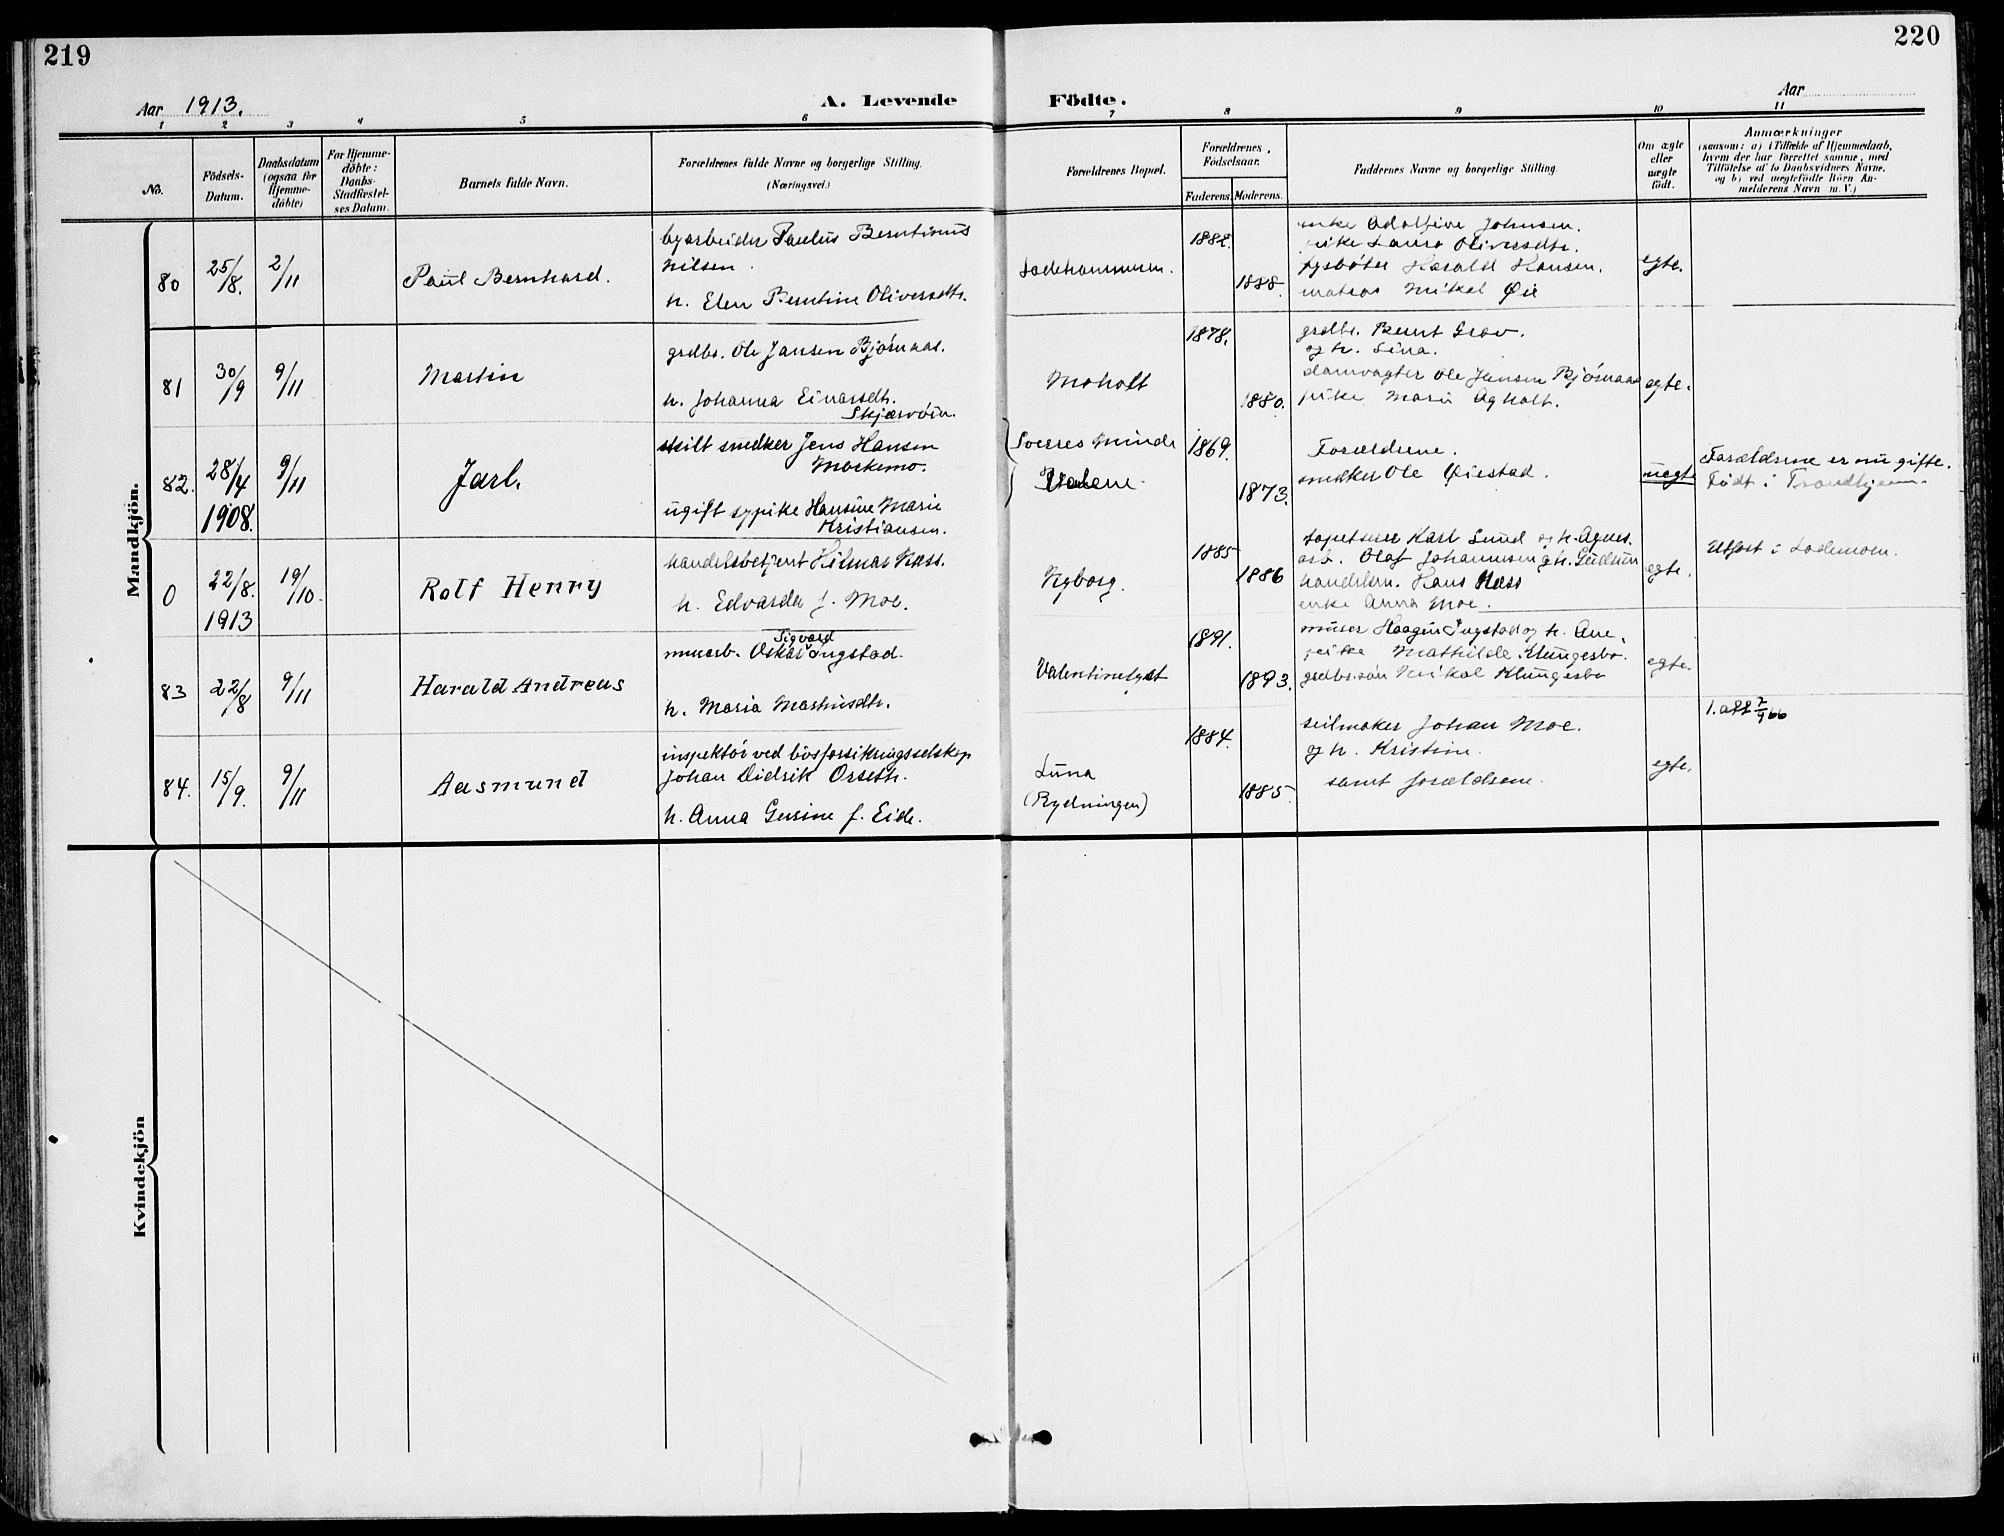 219
220
Aar 1913.
A. Levende Födte.
Aar
1 2 3 4 5 6 7 8 9 10 11
No.
Födsels-Datum.
Daabsdatum (ogsaa for Hjemme-döbte)
For Hjemme-döbte: Daabs-Stadfæstelses Datum.
Barnets fulde Navn.
Forældrenes fulde Navne og borgerlige Stilling.
(Næringsvei.)
Forældrenes Bopæl.
Forældrenes Födselsaar.
Faderens. Moderens.
Faddernes Navne og borgerlige Stilling.
Om ægte eller uægte födt.
Anmærkninger
(saasom: a) i Tilfælde af Hjemmedaab,
hvem der har forrettet samme, med
Tilföielse af to Daabsvidners Navne.
og b) ved uægtefödte Börn An-
melderens Navn m. V.)
Mandkjön.
80 25/8. 2/11 Paul Bernhard.
byarbeider Paulus Berntinus
Nilsen.
h. Elen Berntine Oliversdtr.
Ladehammeren.
1888.
enke Adolfine Johnsen.
pike Laura Oliversdtr.
fyrbøter Harald Hansen.
matros Mikal Øie
egte.
81 30/9 9/11 Martin
grdbr. Ole Jansen Bjørnaas.
h. Johanna Einarsdtr.
Skjærvöen.
Moholt
1878.
1880.
grdbr. Bernt Grav.
og h. Lina.
damvogter Ole Jensen Bjørnaas
pike Marie Agholt.
egte.
82. 28/4 1908. 9/11 Jarl.
skilt snedker Jens Hansen
Moskemo.
ugift sypike Hansine Marie
Kristiansen.
Sverres Minde
1869.
1873.
Forældrene.
snedker Ole Øiestad.
uegte
Forældrene er nu gifte.
Födt i Trondhjem.
0 22/8. 1913 19/10. Rolf Henry
handelsbetjent Hilmar Næss.
h. Edvarda f. Moe.
Nyborg.
1885
1886
tapetserer Karl Lund og h. Agnes.
arb. Olaf Johannesen og h. Gudrun
handelsm. Hans Næss
enke Anna Moe.
egte.
Utflyt i Lademoen.
83 22/8 9/11 Harald Andreas
murarb. Oskar Sigvard Ingstad.
h. Maria Martinsdtr.
Valentinelyst
1891.
1893.
murer Haagen Ingstad og h. Ane.
pike Mathilde Klungesbo.
grdbr.søn Mikal Klungesbo
egte.
84. 15/9. 9/11 Aasmund
inspektör ved livsforsikringsselskap
Johan Didrik Orseth.
h. Anna Gurine f. Eide.
Luna
(Rydningen)
1884.
1885.
seilmaker Johan Moe.
og h. Kristine.
samt forældrene.
egte.
1. att 7/9 66
Kvindekjön